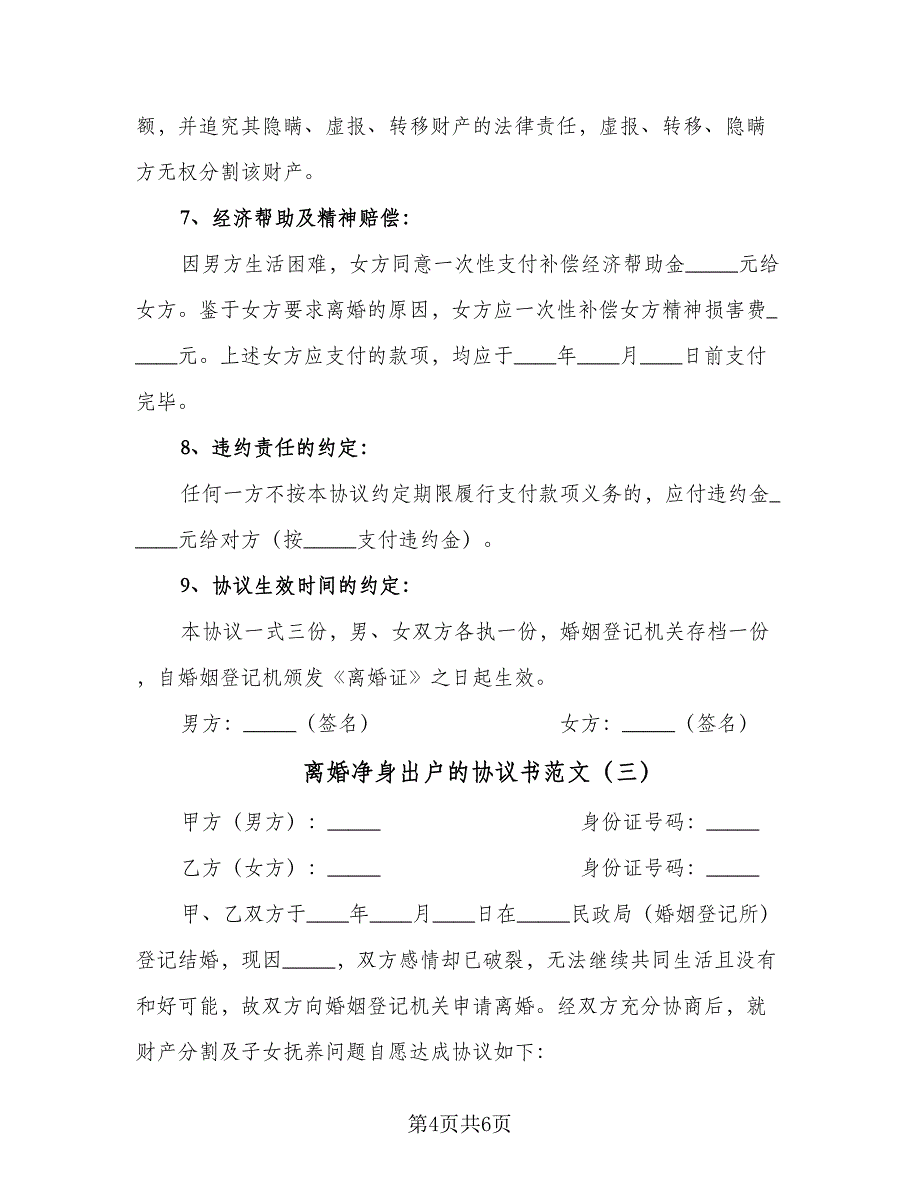 额，并追究其隐瞒、虚报、转移财产的法律责任，虚报、转移、隐瞒
方无权分割该财产。
7、经济帮助及精神赔偿：
因男方生活困难，女方同意一次性支付补偿经济帮助金_____元给
女方。鉴于女方要求离婚的原因，女方应一次性补偿女方精神损害费_
____元。上述女方应支付的款项，均应于____年____月____日前支付
完毕。
8、违约责任的约定：
任何一方不按本协议约定期限履行支付款项义务的，应付违约金_
____元给对方（按_____支付违约金）。
9、协议生效时间的约定：
本协议一式三份，男、女双方各执一份，婚姻登记机关存档一份
，自婚姻登记机颁发《离婚证》之日起生效。
男方：_____（签名） 女方：_____（签名）
离婚净身出户的协议书范文（三）
甲方（男方）：_____ 身份证号码：_____
乙方（女方）：_____ 身份证号码：_____
甲、乙双方于____年____月____日在_____民政局（婚姻登记所）
登记结婚，现因_____，双方感情却已破裂，无法继续共同生活且没有
和好可能，故双方向婚姻登记机关申请离婚。经双方充分协商后，就
财产分割及子女抚养问题自愿达成协议如下：
第4页共6页